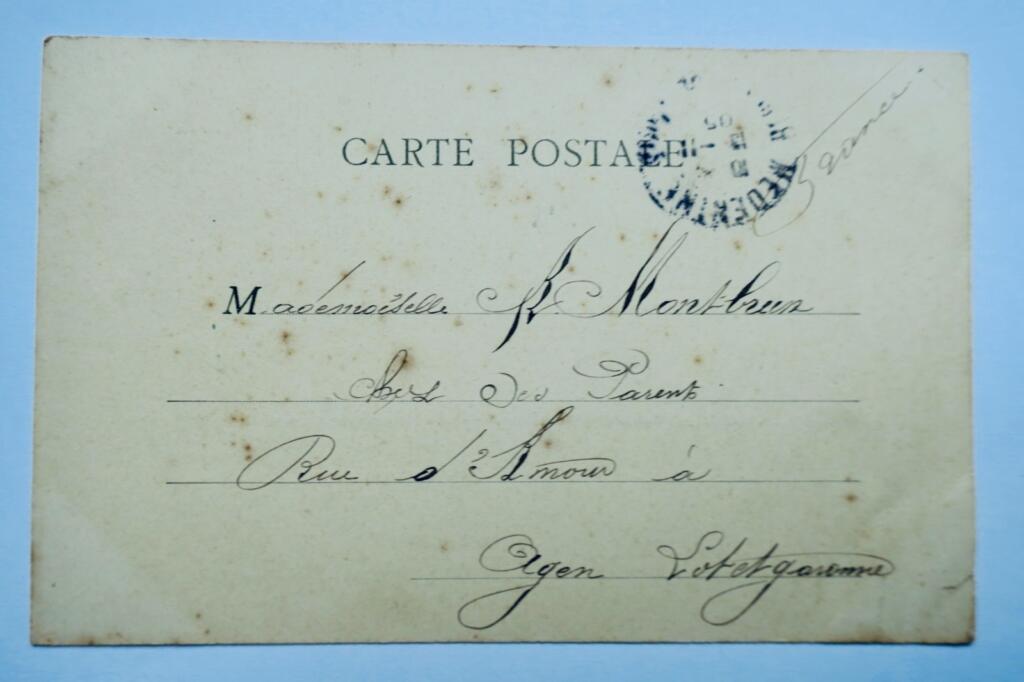 CARTE POSTALE
France
Mademoiselle R. Montbrun
chez ses Parents
Rue d'Amour à
Agen Lot et garonne